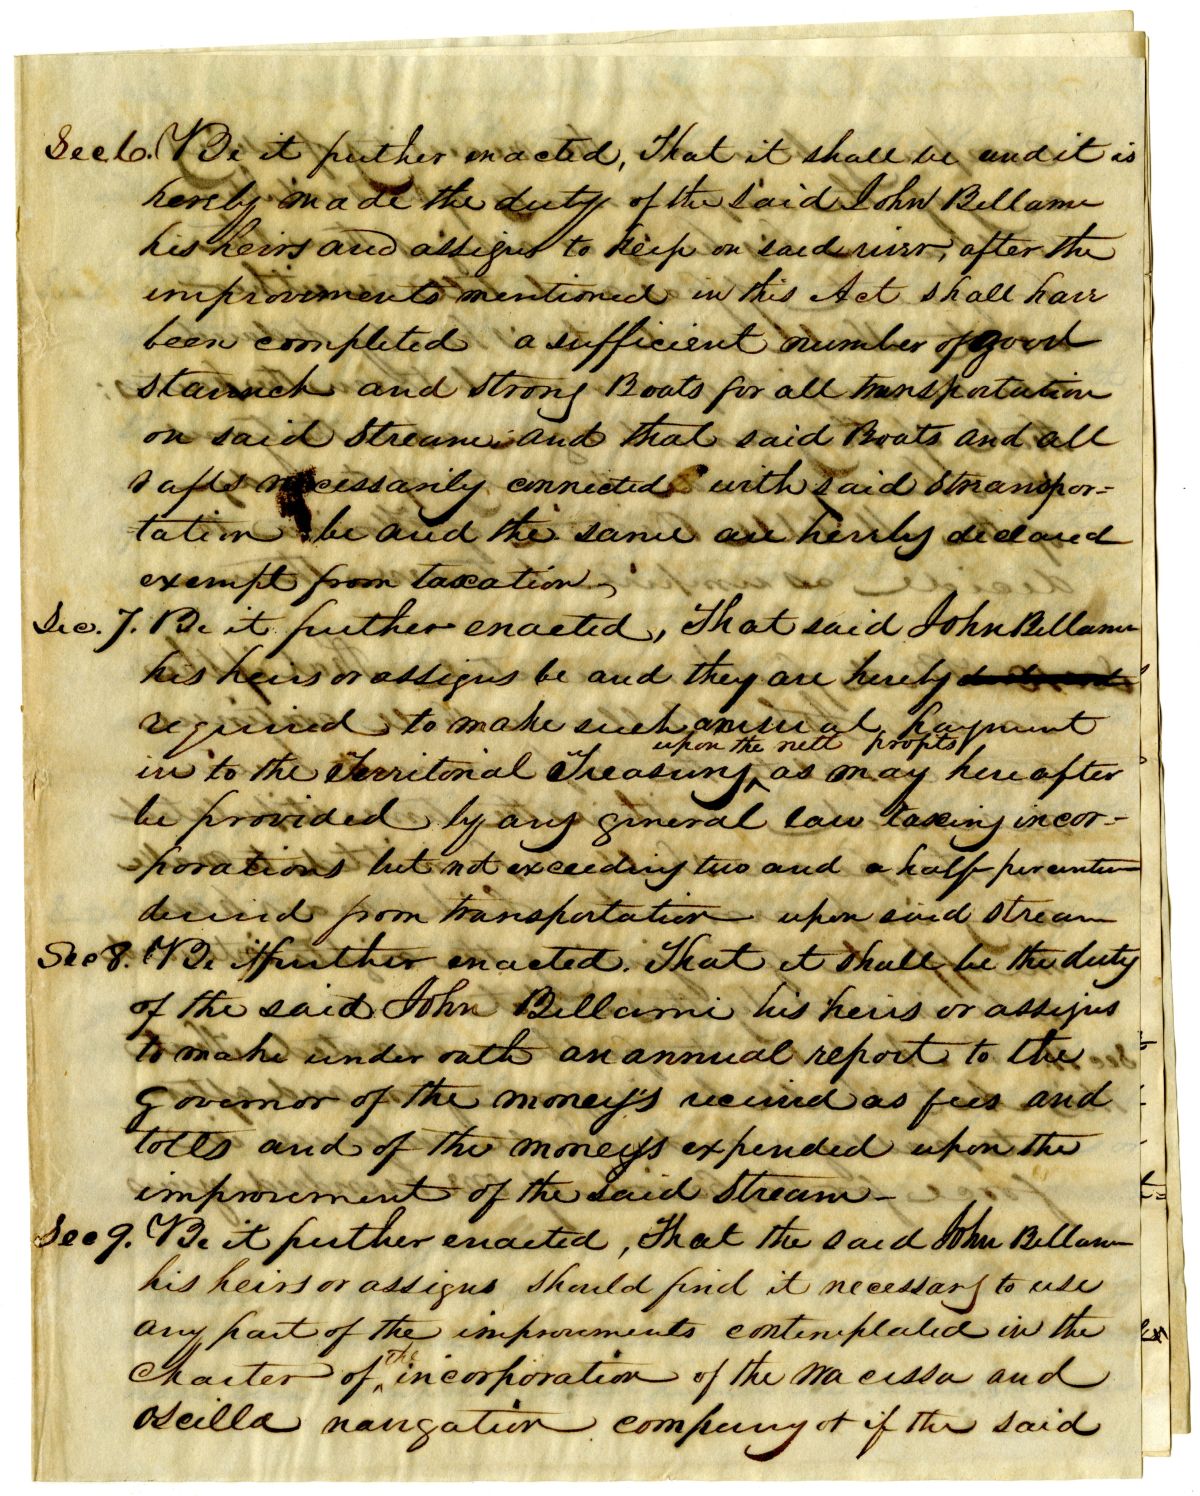 Sec 6. Be it further enacted, That it shall be and it is
hereby made the duty of the said John Bellame
his heirs and assigns to keep on said river, after the
improvements mentioned in this Act shall have
been completed a sufficient number of good
staunch and strong Boats for all transportation
on said Stream; and that said Boats and all
rafts necessarily connected with said transpor=
tation be and the same are hereby declared
exempt from taxation,
Sec. 7. Be it further enacted, That said John Bellame
his heirs or assigns be and they are hereby
required to make such annual payment
upon the nett profits
in to the Territorial Treasury ^ as may here after
be provided by any general law taxing incor-
porations but not exceeding two and a half per centum
derived from transportation upon said Stream
Sec 8. Be it further enacted. That it shall be the duty
of the said John Bellami his heirs or assigns
to make under oath an annual report to the
Governor of the money's received as fees and
tolls and of the moneys expended upon the
improvement of the said Stream-
Sec 9. Be it further enacted, That the said John Bellame
his heirs or assigns should find it necessary to use
any part of the improvements contemplated in the
the
Charter of ^ incorporation of the Wacissa and
Oscilla navigation company or if the said